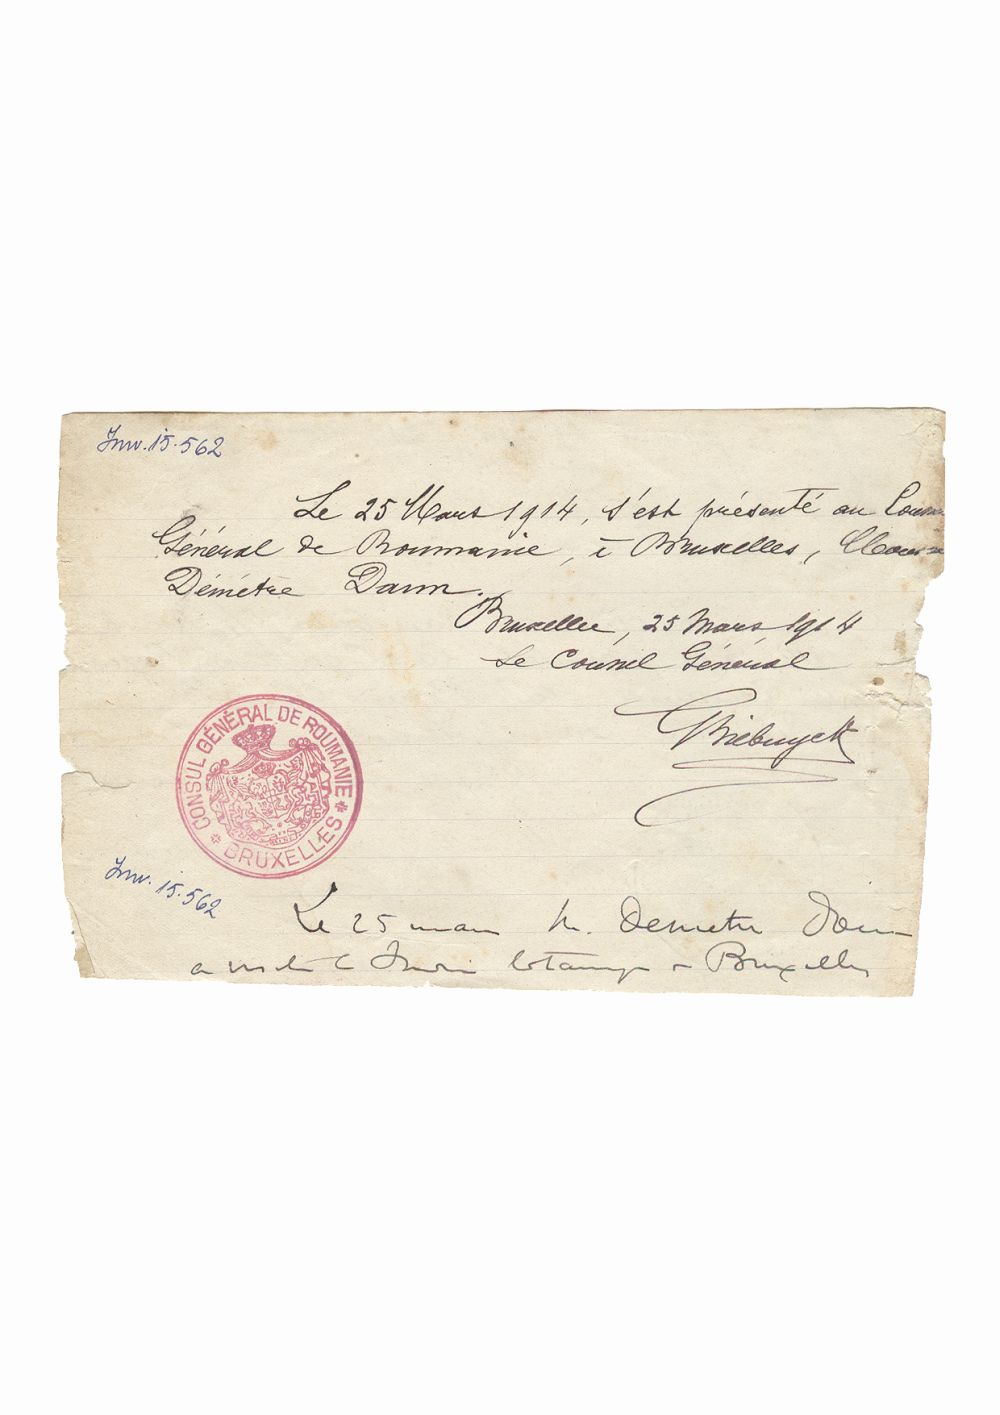 Inv. 15.562
Le 25 Mars 1914, s'est présenté au
Général de Roumanie, à Bruxelles,
Démètre Dann.
Bruxelles, 25 Mars 1914
Le Consul Général
Biebuyck
CONSUL GÉNÉRAL DE ROUMANIE
* BRUXELLES *
Inv. 15.562
Le 25 mars M. Demetre
a visité le Jardin botanique Bruxelles